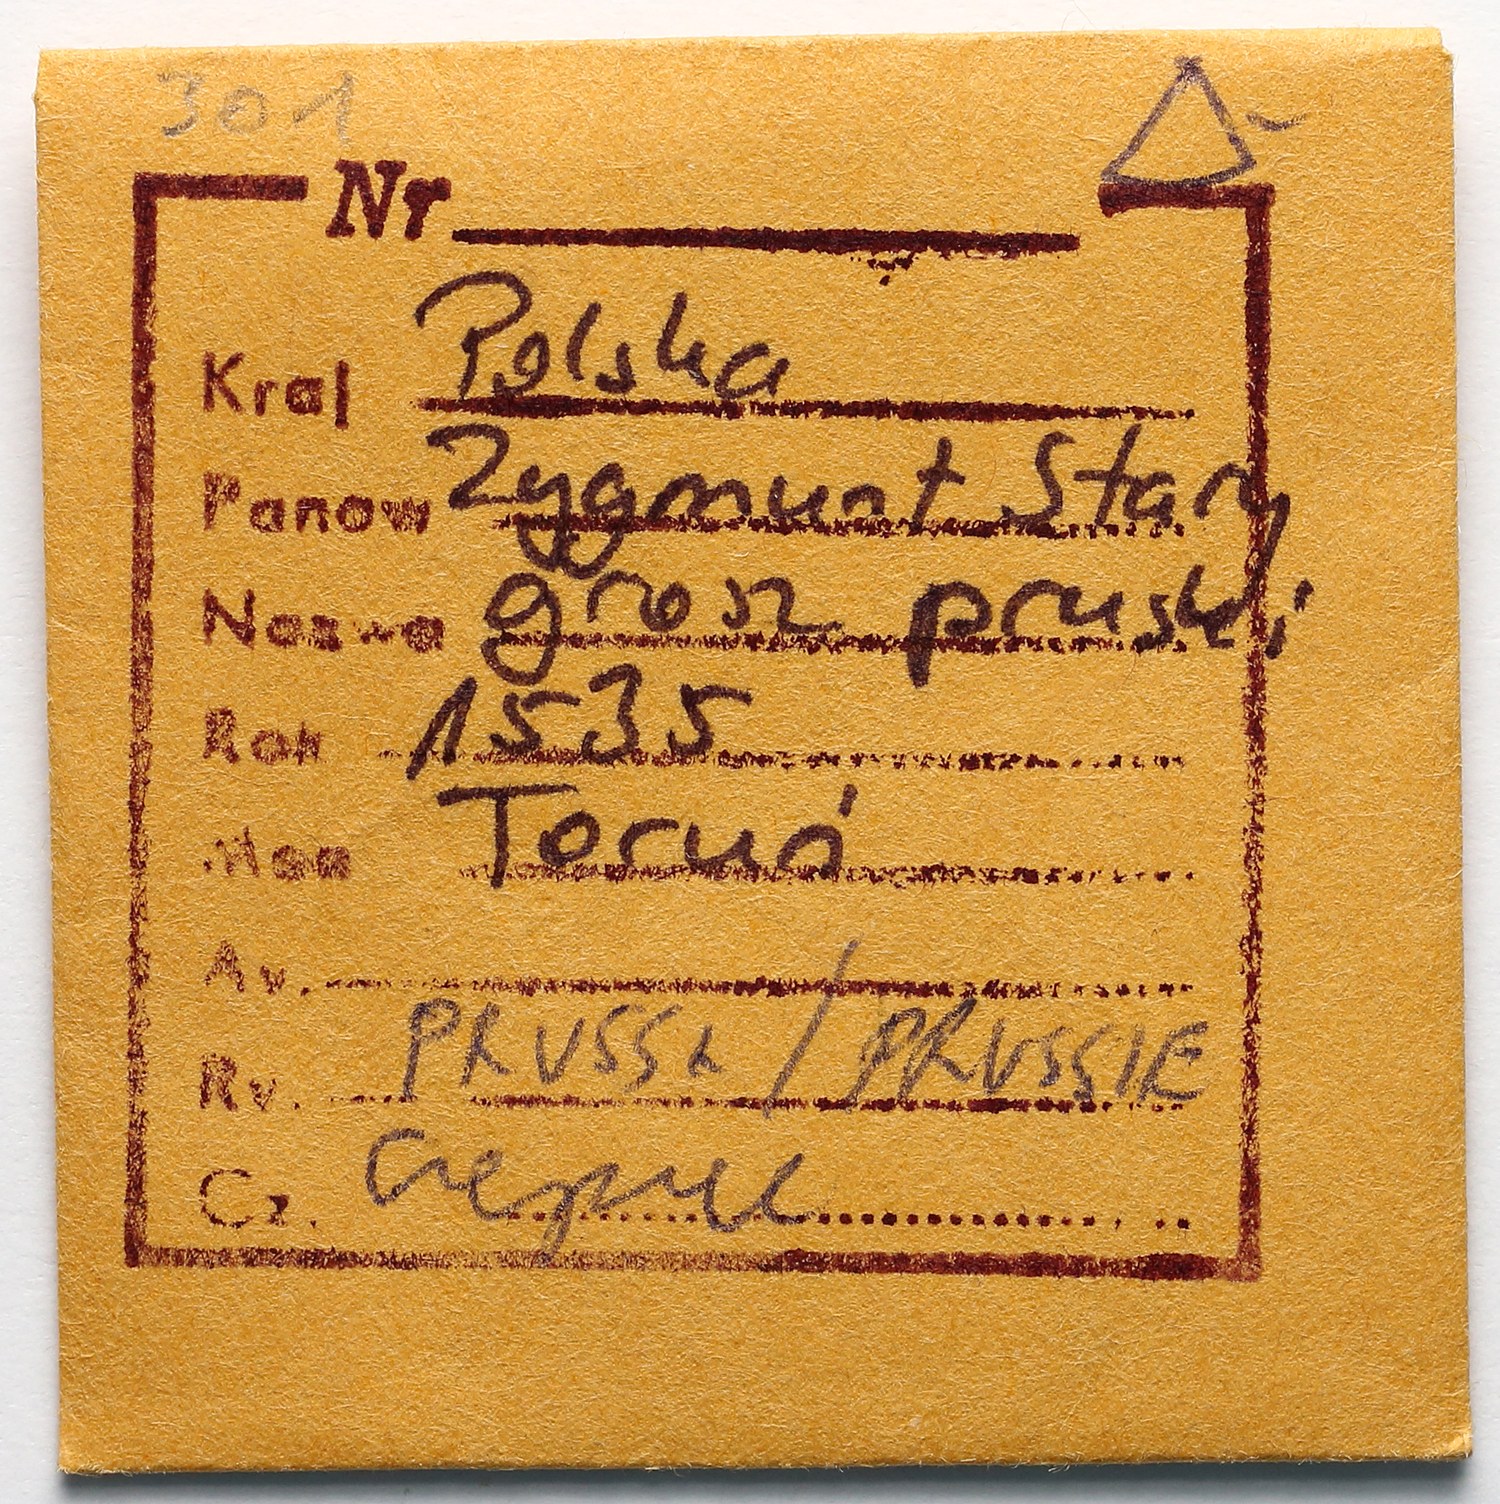 301
Nr
Kraj Polska
Panow Zygmunt Stary
Nazwa grosz pruski
Rok 1535
Men Toruń
Av.
Rv. PRUSSI / PRUSSIE
Cz.